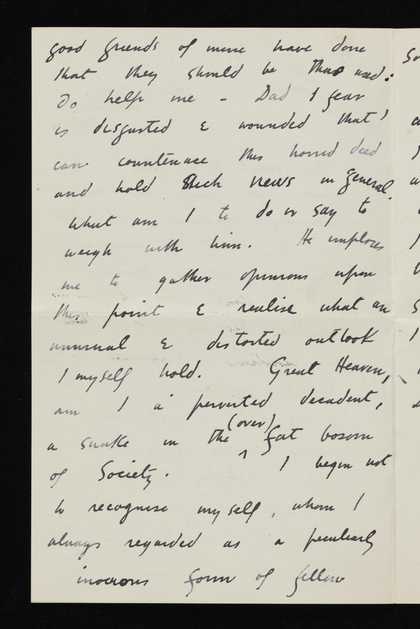 good friends of mine have done
that they should be thus used.
Do help me – Dad I fear
is disgusted & wounded that I
can countenace this horrid deed
and hold such views in general.
What am I to do or say to
weigh with him. He implores
me to gather opinions upon
this point & realise what an
unusual & distorted outlook
I myself hold. Great Heaven,
am I a perverted decadent,
a snake in the (over) fat bosom
of Society. I begin not
to recognise myself, whom I
always regarded as a peculiarly
inocuous form of fellow